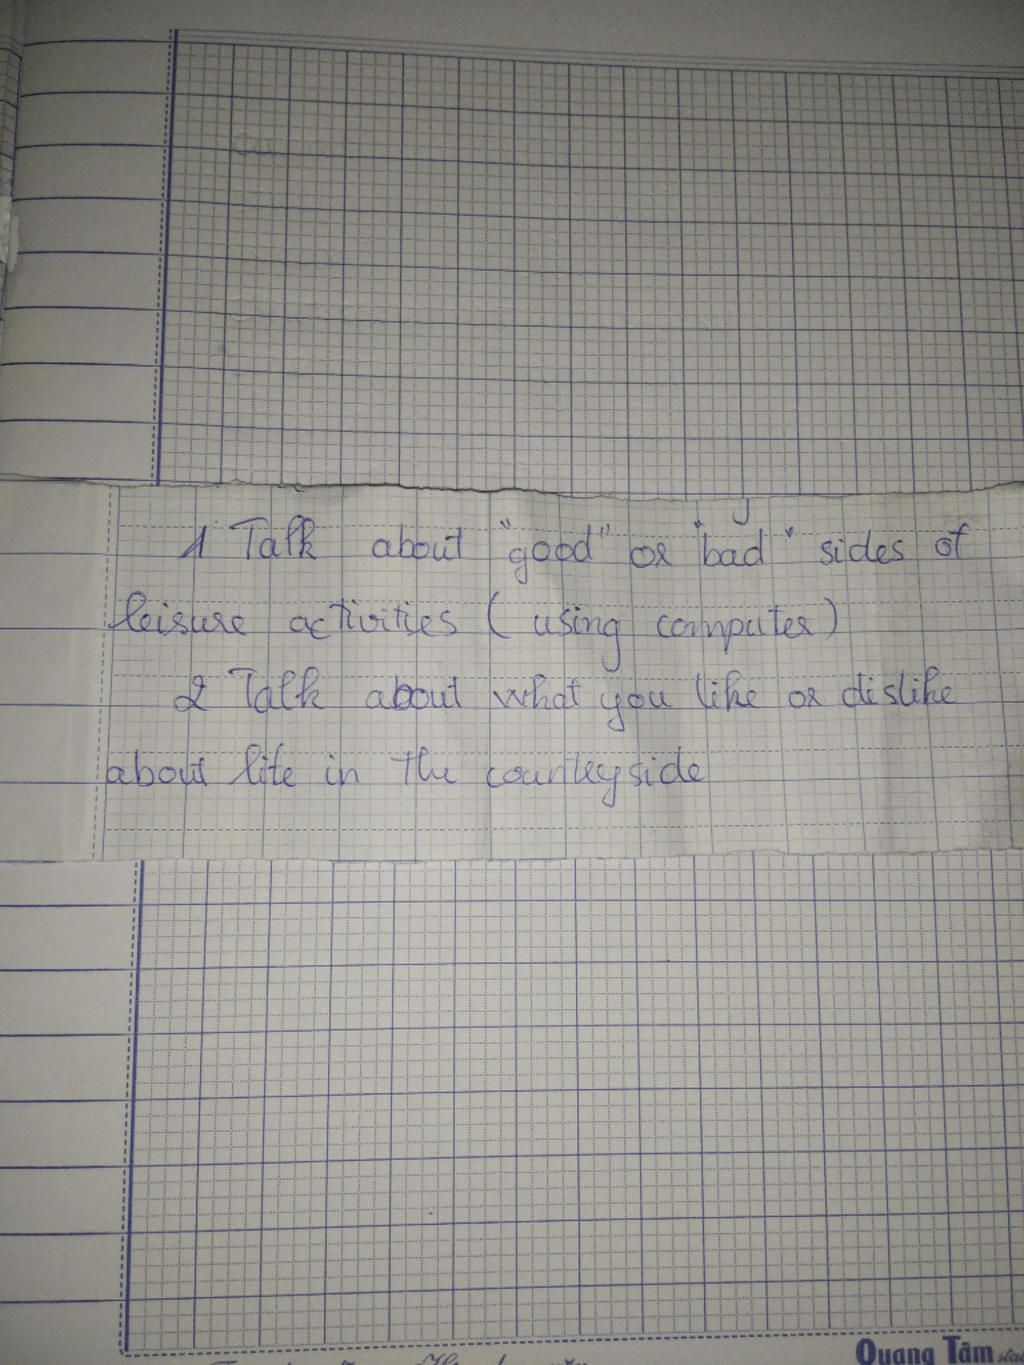 1 Talk about "good" or "bad" sides of
leisure activities ( using computer )
2 Talk about what you like or dislike
about life in the countryside
Quang Tâm